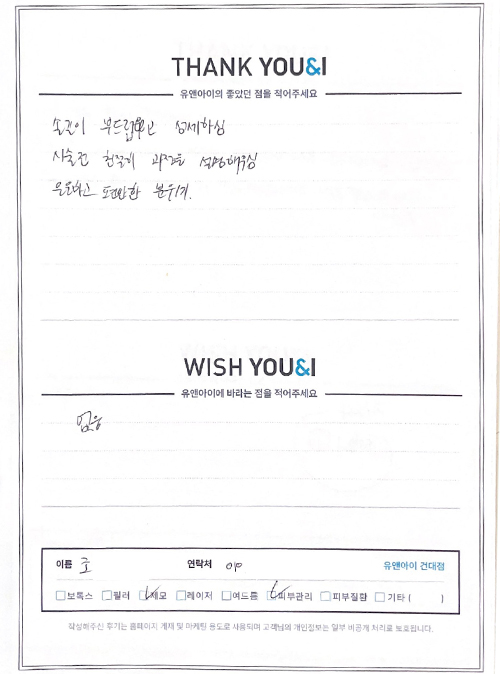 THANK YOU&I
유앤아이의 좋았던 점을 적어주세요
손길이 부드럽고 섬세하심
시술전 친절히 과정을 설명해주심
은은하고 편안한 분위기.
WISH YOU&I
유앤아이에 바라는 점을 적어주세요
없음
이름 조 연락처 010 유앤아이 건대점
보톡스 필러 제모 레이저 여드름 피부관리 피부질환 기타 ( )
작성해주신 후기는 홈페이지 게재 및 마케팅 용도로 사용되며 고객님의 개인정보는 일부 비공개 처리로 보호됩니다.